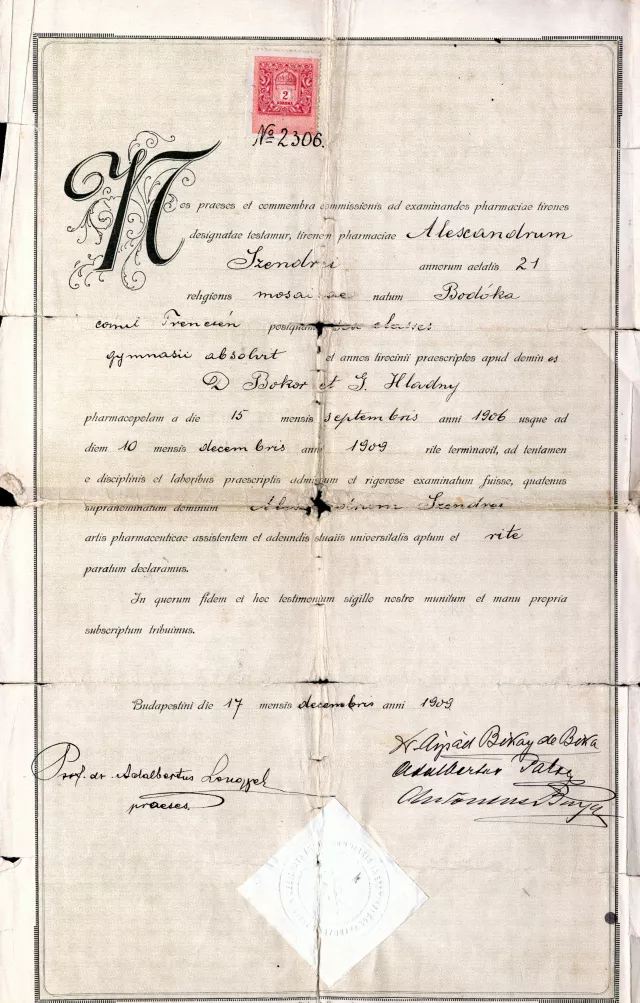 2
KORONA
№ 2306.
Nos praeses et commembra commissionis ad examinandos pharmaciae tirones
designatae testamur, tironem pharmaciae Alexandrum
Szendrői annorum aetatis 21
religionis mosaicae natum Bodóka
comit Trencsén postquam classes
gymnasii absolvit et annos tirocinii praescriptos apud dominos
D Bokor et G. Hladny
pharmacopolam a die 15 mensis septembris anni 1906 usque ad
diem 10 mensis decembris anni 1909 rite terminavit, ad tentamen
e disciplinis et laboribus praescriptis admissum et rigorose examinatum fuisse, quatenus
supranominatum dominum Szendrői
artis pharmaceuticae assistentem et adeundis studiis universitatis aptum et rite
paratum declaramus.
In quorum fidem et hoc testimonium sigillo nostro munitum et manu propria
subscriptum tribuimus.
Budapestini die 17 mensis decembris anni 1909
Dr Árpád Bókay de Bóka
Prof. dr. Adalbertus Lengyel
Adalbertus
praeses.
Antonius